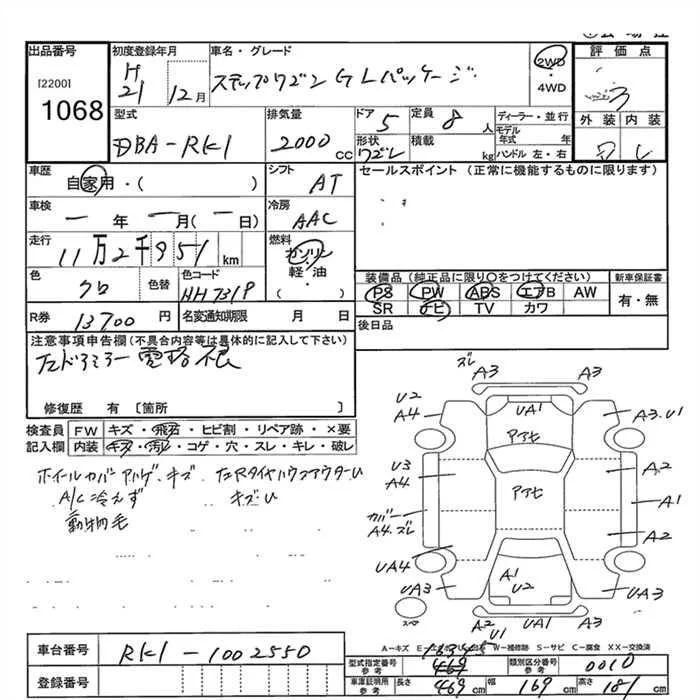 出品番号
[2200]
1068
初度登録年月
H
21 12月
車名・グレード
ステップワゴン GLパッケージ
2WD
4WD
評価点
3
外装 内装
型式
DBA-RK1
排気量
2000 cc
ドア 5
定員 8 人
形状
ワゴン
積載 kg
ディーラー・並行
モデル
年式 年
ハンドル 左・右
車歴
自家用・( )
シフト
AT
セールスポイント(正常に機能するものに限ります)
車検
年 月( 日)
冷房
AAC
走行
11万2千951 km
燃料
ガソリン
軽・油
( )
色
クロ
色替
色コード
NH731P
装備品(純正品に限り○をつけてください)
PS PW ABS エアB AW
SR ナビ TV カワ
新車保証書
有・無
R券
13700 円
名変通知期限 月 日
後日品
注意事項申告欄(不具合内容等は具体的に記入して下さい)
左ドアミラー電格不良
修復歴 有〔箇所 〕
検査員
記入欄
FW キズ・飛石・ヒビ割・リペア跡・×要
内装 キズ・汚レ・コゲ・穴・スレ・キレ・破レ
ホイールカバー キズ
A/C冷えず
動物毛
キズU
ズレ
A3 A3
U2
A4
UA1
A3.U1
U3
A4
A2
A1
カバー
A4.ズレ
A2
UA4
A1
U2
UA3
UA3
スペア
A2 U1 A3
A-キズ W-補修跡 S-サビ C-腐食 XX-交換済
車台番号
RK1-1002550
登録番号
型式指定番号
参考
類別区分番号
参考
0010
車庫証明用
参考
長さ 469 cm
幅 169 cm
高さ 181 cm